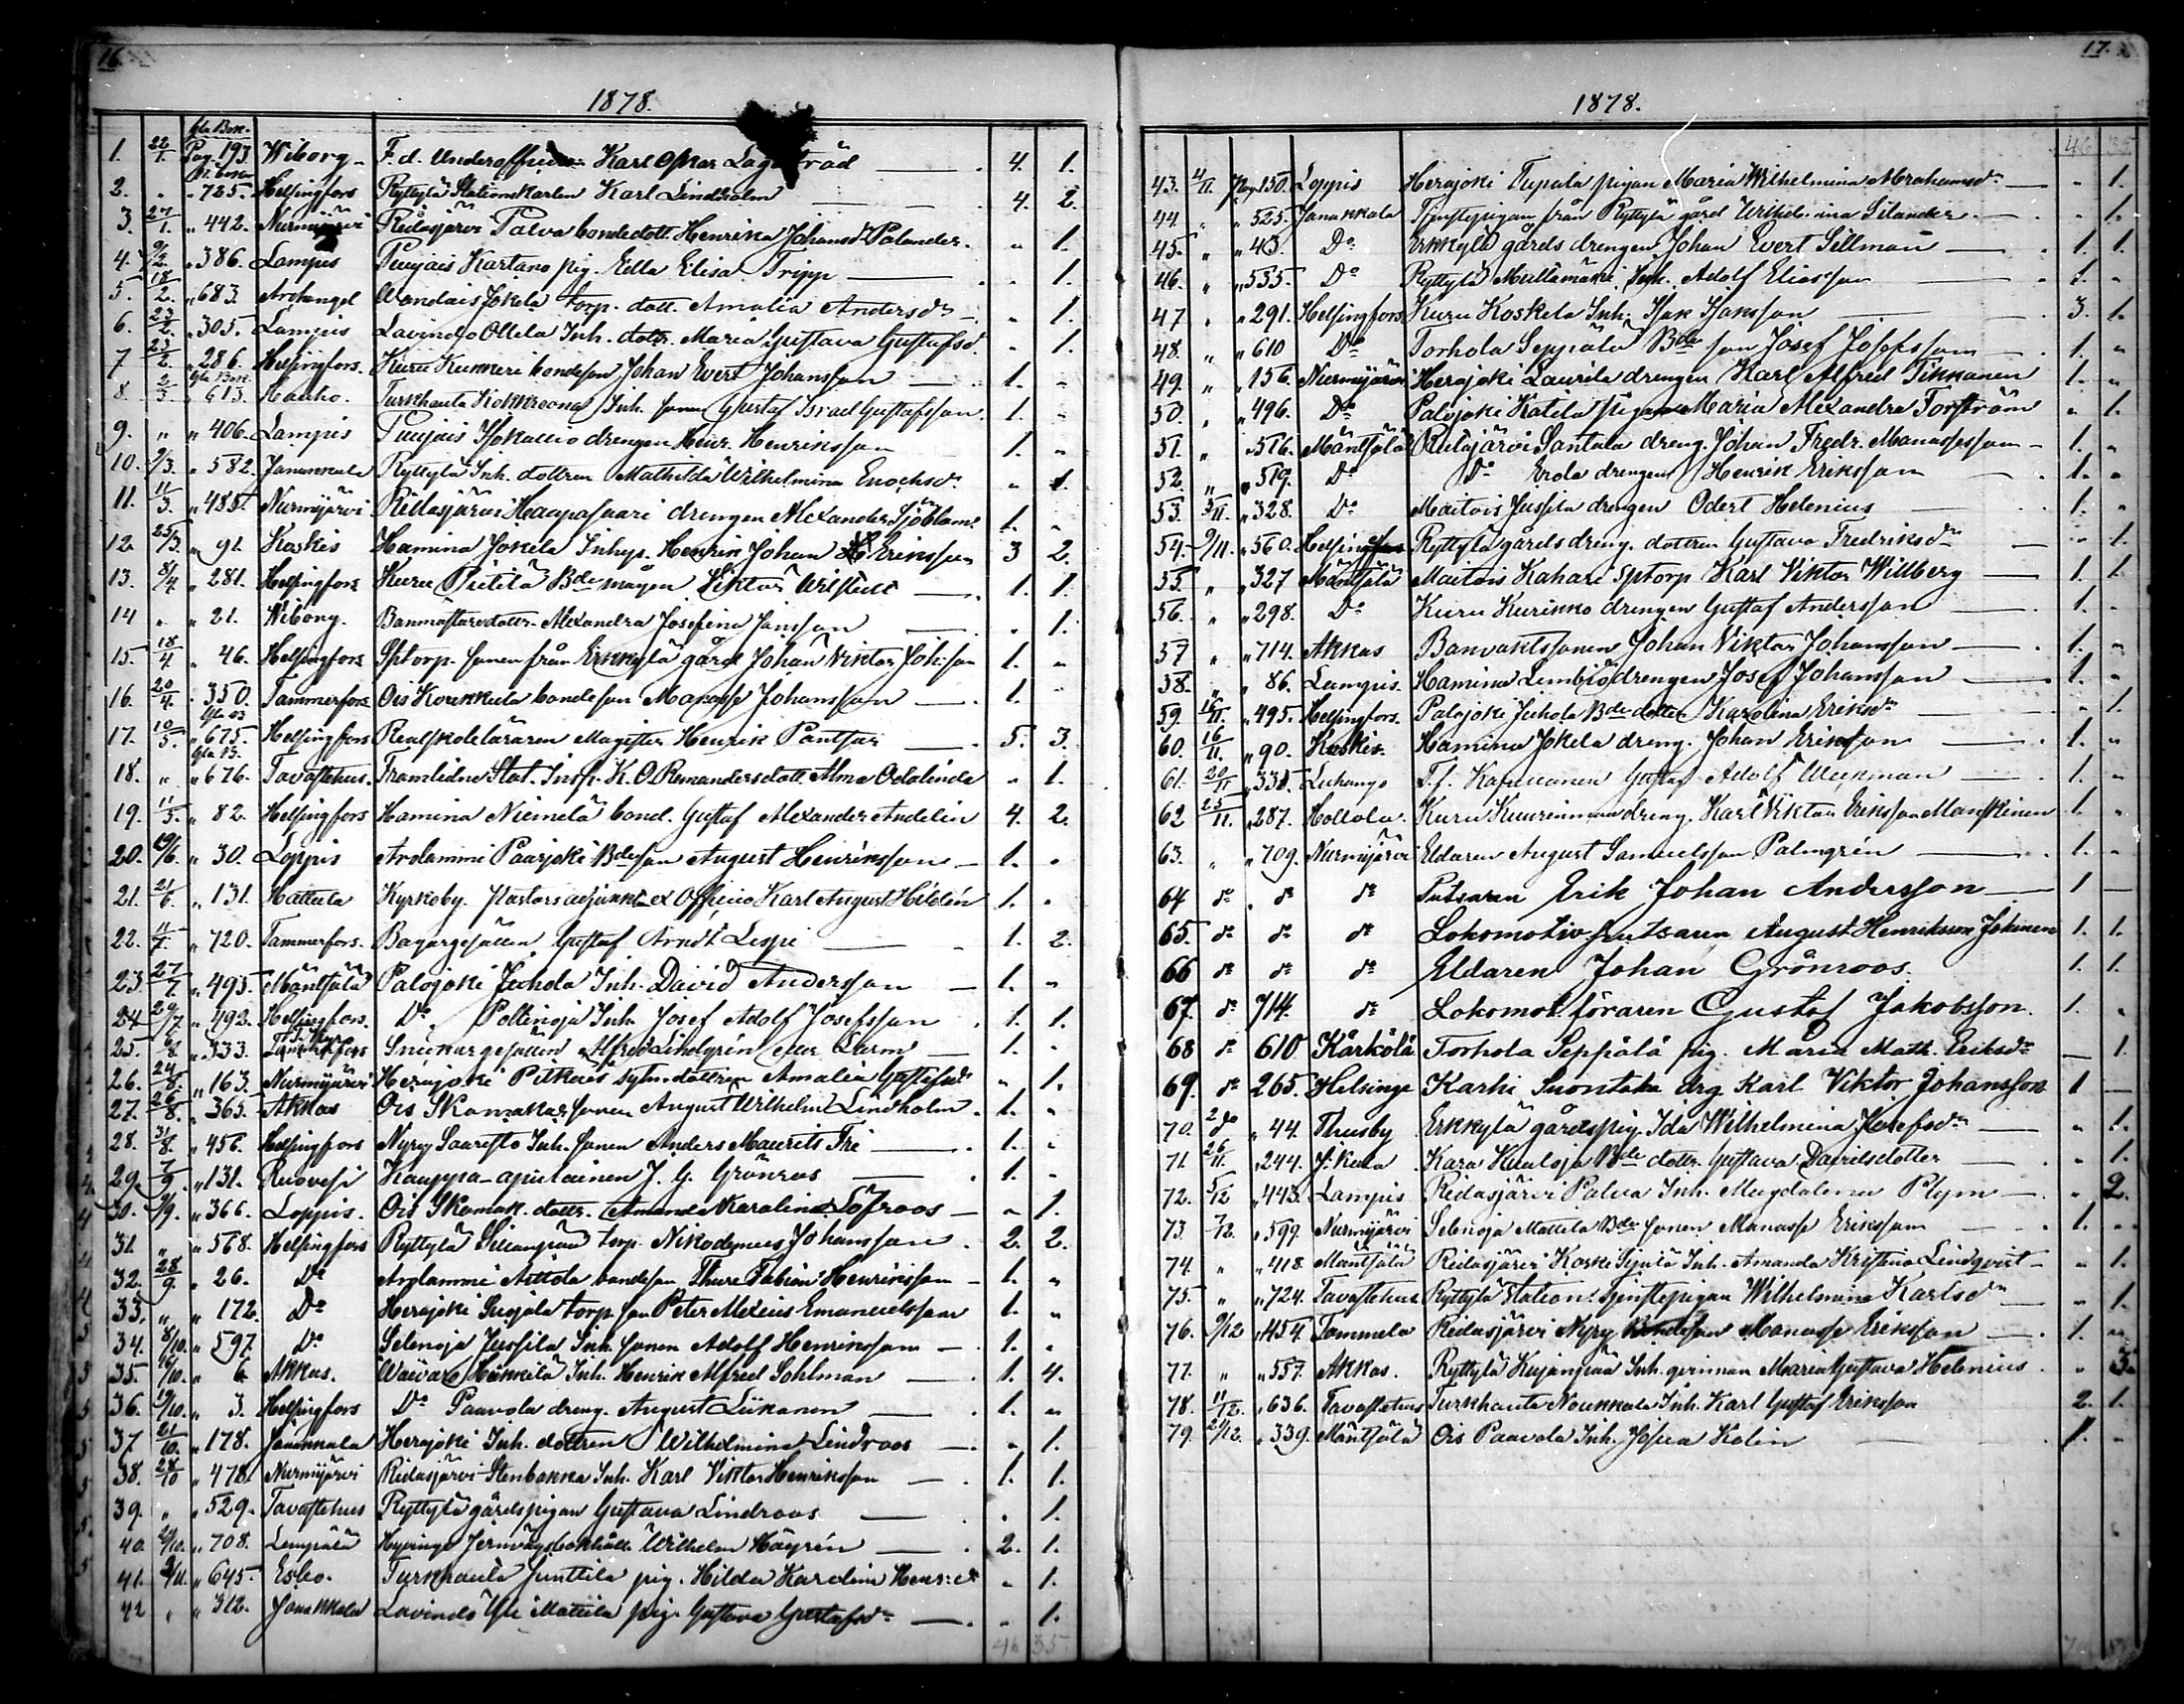 16.
1878.
Gla Bok.
1. 22/1. Pag. 193. Wiborg. F. d. Underofficer Karl Oskar 4. 1.
2. " " 725. Helsingfors Ryttylä Stationskarlen Karl Lindholm 4. 2.
3. 27/1. " 442. Nurmijärvi Ridasjärvi Palva bondedott. Henrika Johansdr Palander. " 1.
4. 9/2. " 386. Lampis Puujais Kartano pig. Edla Elisa Tripp " 1.
5. 18/2. " 683. Archangel Wandais Jokela torp. dott. Amalia Andersdr " 1.
6. 23/2. " 305. Lampis Lavindo Ollila Inh. dottr. Maria Gustava Gustafsd. " 1.
7 23/2. " 286. Helsingfors. Kuru Kummeri bondeson Johan Evert Johansson 1. "
Gla Bok.
8. 2/3. " 613. Hauho. Turkhauta Inh. sonen Gustaf Israel Gustafsson 1. "
9. " " 406. Lampis Puujais Isokallio drengen Henr. Henriksson 1. "
10. 9/3. " 582. Janakkala Ryttylä Inh. dottren Mathilda Wilhelmina Enochsdr " 1.
11. 11/3. " 485. Nurmijärvi Ridasjärvi Haapasaari drengen Alexander Sjöblom. 1. "
12. 25/3. " 91. Koskis Hamina Jokela Inhys. Henrik Johan Eriksson 3 2.
13. 8/4 " 281. Helsingfors Kuru Pietilä Bde mågen Viktor 1. 1.
14 " " 21. Wiborg. Banmästaredottr. Alexandra Josefina Jansson " 1.
15. 18/4 " 46. Helsingfors Sptorp. sonen från Erkkylä gård Johan Viktor Joh:son 1. "
16. 20/4. " 350. Tammerfors Ois Koukkula bondeson Manasse Johansson 1. "
17. 10/5. " 675. Helsingfors Realskoleläraren Magister Henrik Pantsar 5. 3.
18. " " 676. Tavastehus. Framlidne Stat. Insp. K. O. Romandersdott. Alma Odalinda " 1.
19. 11/5. " 82. Helsingfors Hamina Niemelä bond. Gustaf Alexander Andelin 4. 2.
20. 19/6. " 30. Loppis Arolammi Paarjoki Bdeson August Henriksson 1. "
21. 21/6. " 131. Hattula Kyrkoby. Pastorsadjunkt ex Officio Karl August Hildén 1. "
22. 11/7. " 720. Tammerfors. Bagargesällen Gustaf Arndt Lespi 1. 2.
23 27/7. " 495. Mäntsälä Palojoki Juhola Inh. David Andersson 1. "
24 29/7. " 492. Helsingfors. Do Pottinoja Inh. Josef Adolf Josefsson 1. 1.
25. 6/8. " 333. Snickargesällen Alfred Lindgrén eller Larm 1. "
26. 24/8. " 163. Nurmijärvi Herajoki Pitkäis sytn. dottren Amalia Gustafsdr " 1.
27. 26/8. " 365. Akkas Ois Skomakarsonen August Wilhelm Lindholm. 1. "
28. 31/8. " 456. Helsingfors Nyry Saaristo Inh. sonen Anders Maurits Fri 1. "
29. 7/9. " 131. Ruovesi Kauppa-apulainen J. G. Grönroos 1. "
30. 9/9. " 366. Loppis. Ois Skomak. dottr. Amanda Karolina Löfroos " 1.
31. " " 568. Helsingfors Ryttylä Sillanpää torp. Nikodemus Johansson 2. 2.
32. 28/9. " 26. Do Arolammi Aittola bondeson Thure Fabian Henriksson 1. "
33. " " 172. Do Herajoki Suojala torp. son Peter Alexius Emanuelsson 1. "
34. 8/10. " 597. Do Selenoja Jussila Inh. sonen Adolf Henriksson 1. "
35. 16/10. " 6. Akkas. Waiwaro Heikkilä Inh. Henrik Alfred Sohlman 1. 4.
36. 19/10. " 3. Helsingfors Do Paavola dreng. August Liikanen 1. "
37 21/10. " 178. Janakkala Herajoki Inh. dottren Wilhelmina Lindroos " 1.
38. 28/10 " 478. Nurmijärvi Ridasjärvi Stenbacka Inh. Karl Viktor Henriksson 1. 1.
39. " " 529. Tavastehus Ryttylä gårdspigan Gustava Lindroos " 1.
40. 29/10. " 708. Lempälä Hyvinge Jernvägsbokhåll. Wilhelm Häyrén 2. 1.
41. 2/11. " 645. Esbo. Turkhauta Junttila pig. Hilda Karolina Henr:dr " 1.
42 " " 312. Janakkala Lavindo Yli Mattila pig. Gustava Gustafsdr " 1.
46 35.
17.
1878.
46 35
43. 4/11. Pag. 150. Loppis Herajoki Tupala pigan Maria Wilhelmina Abrahamsdr " 1.
44. " " 525. Janakkala Tjenstepigan från Ryttylä gård Wilhelmina Silander " 1.
45. " " 43. Do Erkkylä gårds drengen Johan Evert Sillman 1. 1.
46. " " 535. Do Ryttylä Multamäki Inh. Adolf Eliasson 1. "
47 " " 291. Helsingfors Kuru Koskela Inh. Isak Isaksson 3. 1.
48. " " 610 Do Torhola Seppälä Bde son Josef Josefsson 1. "
49. " " 156. Nurmijärvi Herajoki Laurila drengen Karl Alfred Tikkanen 1. "
50. " " 496. Do Palojoki Katila pigan Maria Alexandra Forström " 1.
51. " " 516. Mäntsälä Ridasjärvi Santala dreng. Johan Fredr. Manassesson 1. "
52. " " 519. Do Do Erola drengen Henrik Eriksson 1. "
53. 5/11. " 328. Do Maitois Jussila drengen Odert Helenius 1. "
54. 9/11. " 560. Helsingfors Ryttylä gårds dreng. dottren Gustava Fredriksdr " 1.
55. " " 327 Mäntsälä Maitois Kahari sptorp. Karl Viktor Willberg 1. 1.
56. " " 298. Do Kuru Kurikko drengen Gustaf Andersson 1. "
57 " " 714. Akkas Banvaktssonen Johan Viktor Johansson 1. "
58. " " 86. Lampis. Hamina Limbio drengen Josef Johansson 1. "
59. 16/11. " 495. Helsingfors. Palojoki Juhola Bde dotter Karolina Eriksdr " 1.
60. 16/11. " 90. Koskis. Hamina Jokela dreng. Johan Eriksson 1. "
61. 20/11 " 331. Luhango T. f. Kapellanen Gustaf Adolf Weckman 1. "
62 25/11. " 287. Hollola. Kuru Kuurinmaa dreng. Karl Viktor Eriksson Manskinen 1. "
63. " " 709. Nurmijärvi Eldaren August Samuelsson Palmgrén 1. "
64 do do do Putsaren Erik Johan Andersson 1 —
65. do do do Lokomotivputsaren August Henriksson Jokinen 1. 1.
66 do do do Eldaren Johan Grönroos. 1. 1.
67. do 714. do Lokomot. föraren Gustaf Jakobsson. 1. "
68 do 610 Kärkölä Torhola Seppälä pig. Maria Math. Eriksdr — 1.
69. do 265. Helsinge Karhi Suontaka drg Karl Viktor Johansson 1 —
70. " 44. Thusby Erkkylä gårdspig. Ida Wilhelmina Josefsdr " 1.
71. 26/11. " 244. Kara Huuloja Bde dottr. Gustava Davidsdotter " 1.
72. 5/12 " 443. Lampis Ridasjärvi Palva Inh. Magdalena Plym " 2.
73. 7/12. " 599. Nurmijärvi Selenoja Mattila Bde sonen Manasse Eriksson 1. "
74. " " 418. Mäntsälä Ridasjärvi Koski Inh. Amanda Kristina Lindqvist " 1.
75. " " 724. Tavastehus Ryttylä Station. Tjenstepigan Wilhelmina Karlsdr " 1.
76. 9/12 " 454. Tammela Ridasjärvi Nyry Bondeson Manasse Eriksson 1. "
77. " " 557. Akkas. Ryttylä Kujanpää Inh. qvinnan Maria Gustava Helenius " 3.
78. 11/12. " 636. Tavastehus Turkhauta Noukkala Inh. Karl Gustaf Eriksson 2. 1.
79. 21/12. " 339. Mäntsälä Ois Paavola Inh. Josua Kolin 1. "